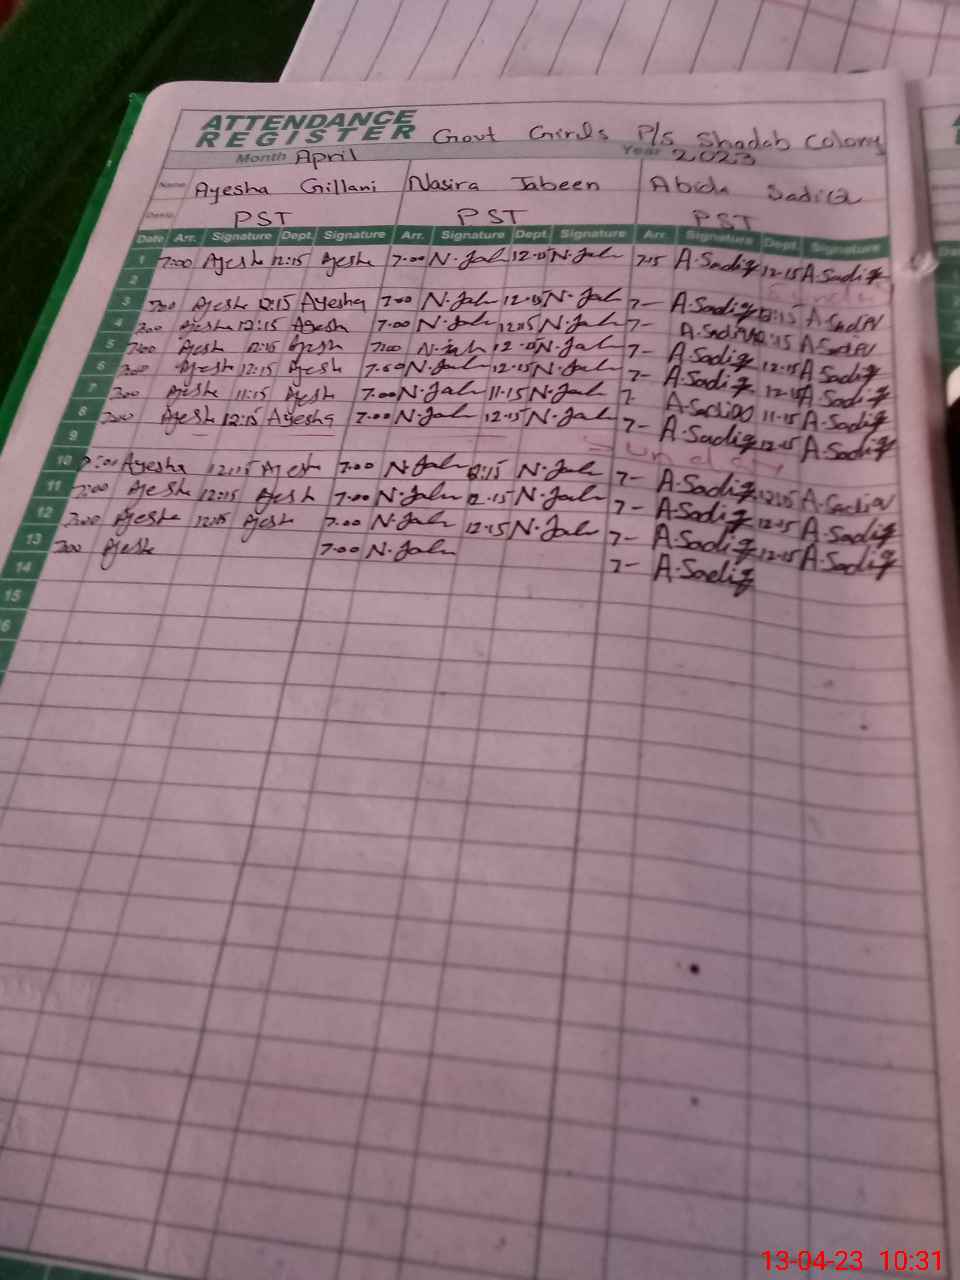 ATTENDANCE
REGISTER Govt Girls P/S Shadab Colony
Month April Year 2023
Name Ayesha Gillani Nasira Jabeen Abida Sadiq
Desig. PST PST PST
Date Arr. Signature Dept. Signature Arr. Signature Dept. Signature Arr. Signature Dept. Signature
1 7:00 Ayesha 12:15 Ayesha 7.00 N.Jab 12.15 N.Jab 7.15 A.Sadiq 12.15 A.Sadiq
2 Sunday
3 7:00 Ayesha 12:15 Ayesha 7.00 N.Jab 12.15 N.Jab 7- A.Sadiq 12:15 A.Sadiq
4 7:00 Ayesha 12:15 Ayesha 7.00 N.Jab 12.15 N.Jab 7- A.Sadiq 12.15 A.Sadiq
5 7:00 Ayesh 12:15 Ayesh 7.00 N.Jab 12.15 N.Jab 7- A.Sadiq 12.15 A.Sadiq
6 7:00 Ayesh 12.15 Ayesh 7.00 N.Jab 12.15 N.Jab 7- A.Sadiq 12.15 A.Sadiq
7 7:00 Ayesha 11:15 Ayesh 7.00 N.Jab 11.15 N.Jab 7 A.Sadiq 11.15 A.Sadiq
8 7:00 Ayesh 12:15 Ayesha 7.00 N.Jab 12.15 N.Jab 7- A.Sadiq 12.15 A.Sadiq
9 Sunday
10 7:00 Ayesha 12:15 Ayesh 7.00 N.Jab 12:15 N.Jab 7- A.Sadiq 12.15 A.Sadiq
11 7:00 Ayesh 12:15 Ayesh 7.00 N.Jab 12.15 N.Jab 7- A.Sadiq 12.15 A.Sadiq
12 7:00 Ayesha 12:15 Ayesh 7.00 N.Jab 12.15 N.Jab 7- A.Sadiq 12.15 A.Sadiq
13 7:00 Ayesh 7.00 N.Jab 7- A.Sadiq
14
15
16
13-04-23 10:31